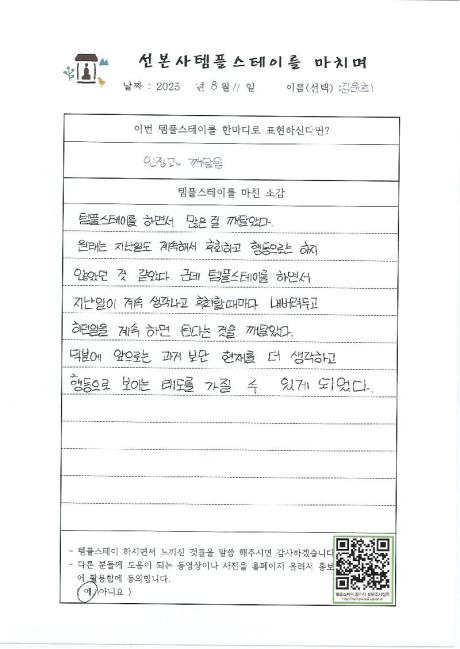 선본사템플스테이를 마치며
날짜 : 2025 년 8월 11 일 이름(선택) :
이번 템플스테이를 한마디로 표현하신다면?
인정하는 깨달음
템플스테이를 마친 소감
템플스테이를 하면서 많은 걸 깨달았다.
원래는 지난일도 계속해서 후회하고 행동으로는 하지
않았던 것 같았다. 근데 템플스테이를 하면서
지난일이 계속 생각나고 후회할때마다 내버려두고
하던일을 계속 하면 된다는 것을 깨달았다.
덕분에 앞으로는 과거 보단 현재를 더 생각하고
행동으로 보이는 태도를 가질 수 있게 되었다.
- 템플스테이 하시면서 느끼신 것들을 말씀 해주시면 감사하겠습니
- 다른 분들께 도움이 되는 동영상이나 사진을 홈페이지 올려서 홍보
에 활용함에 동의합니다.
( 예/아니요 )